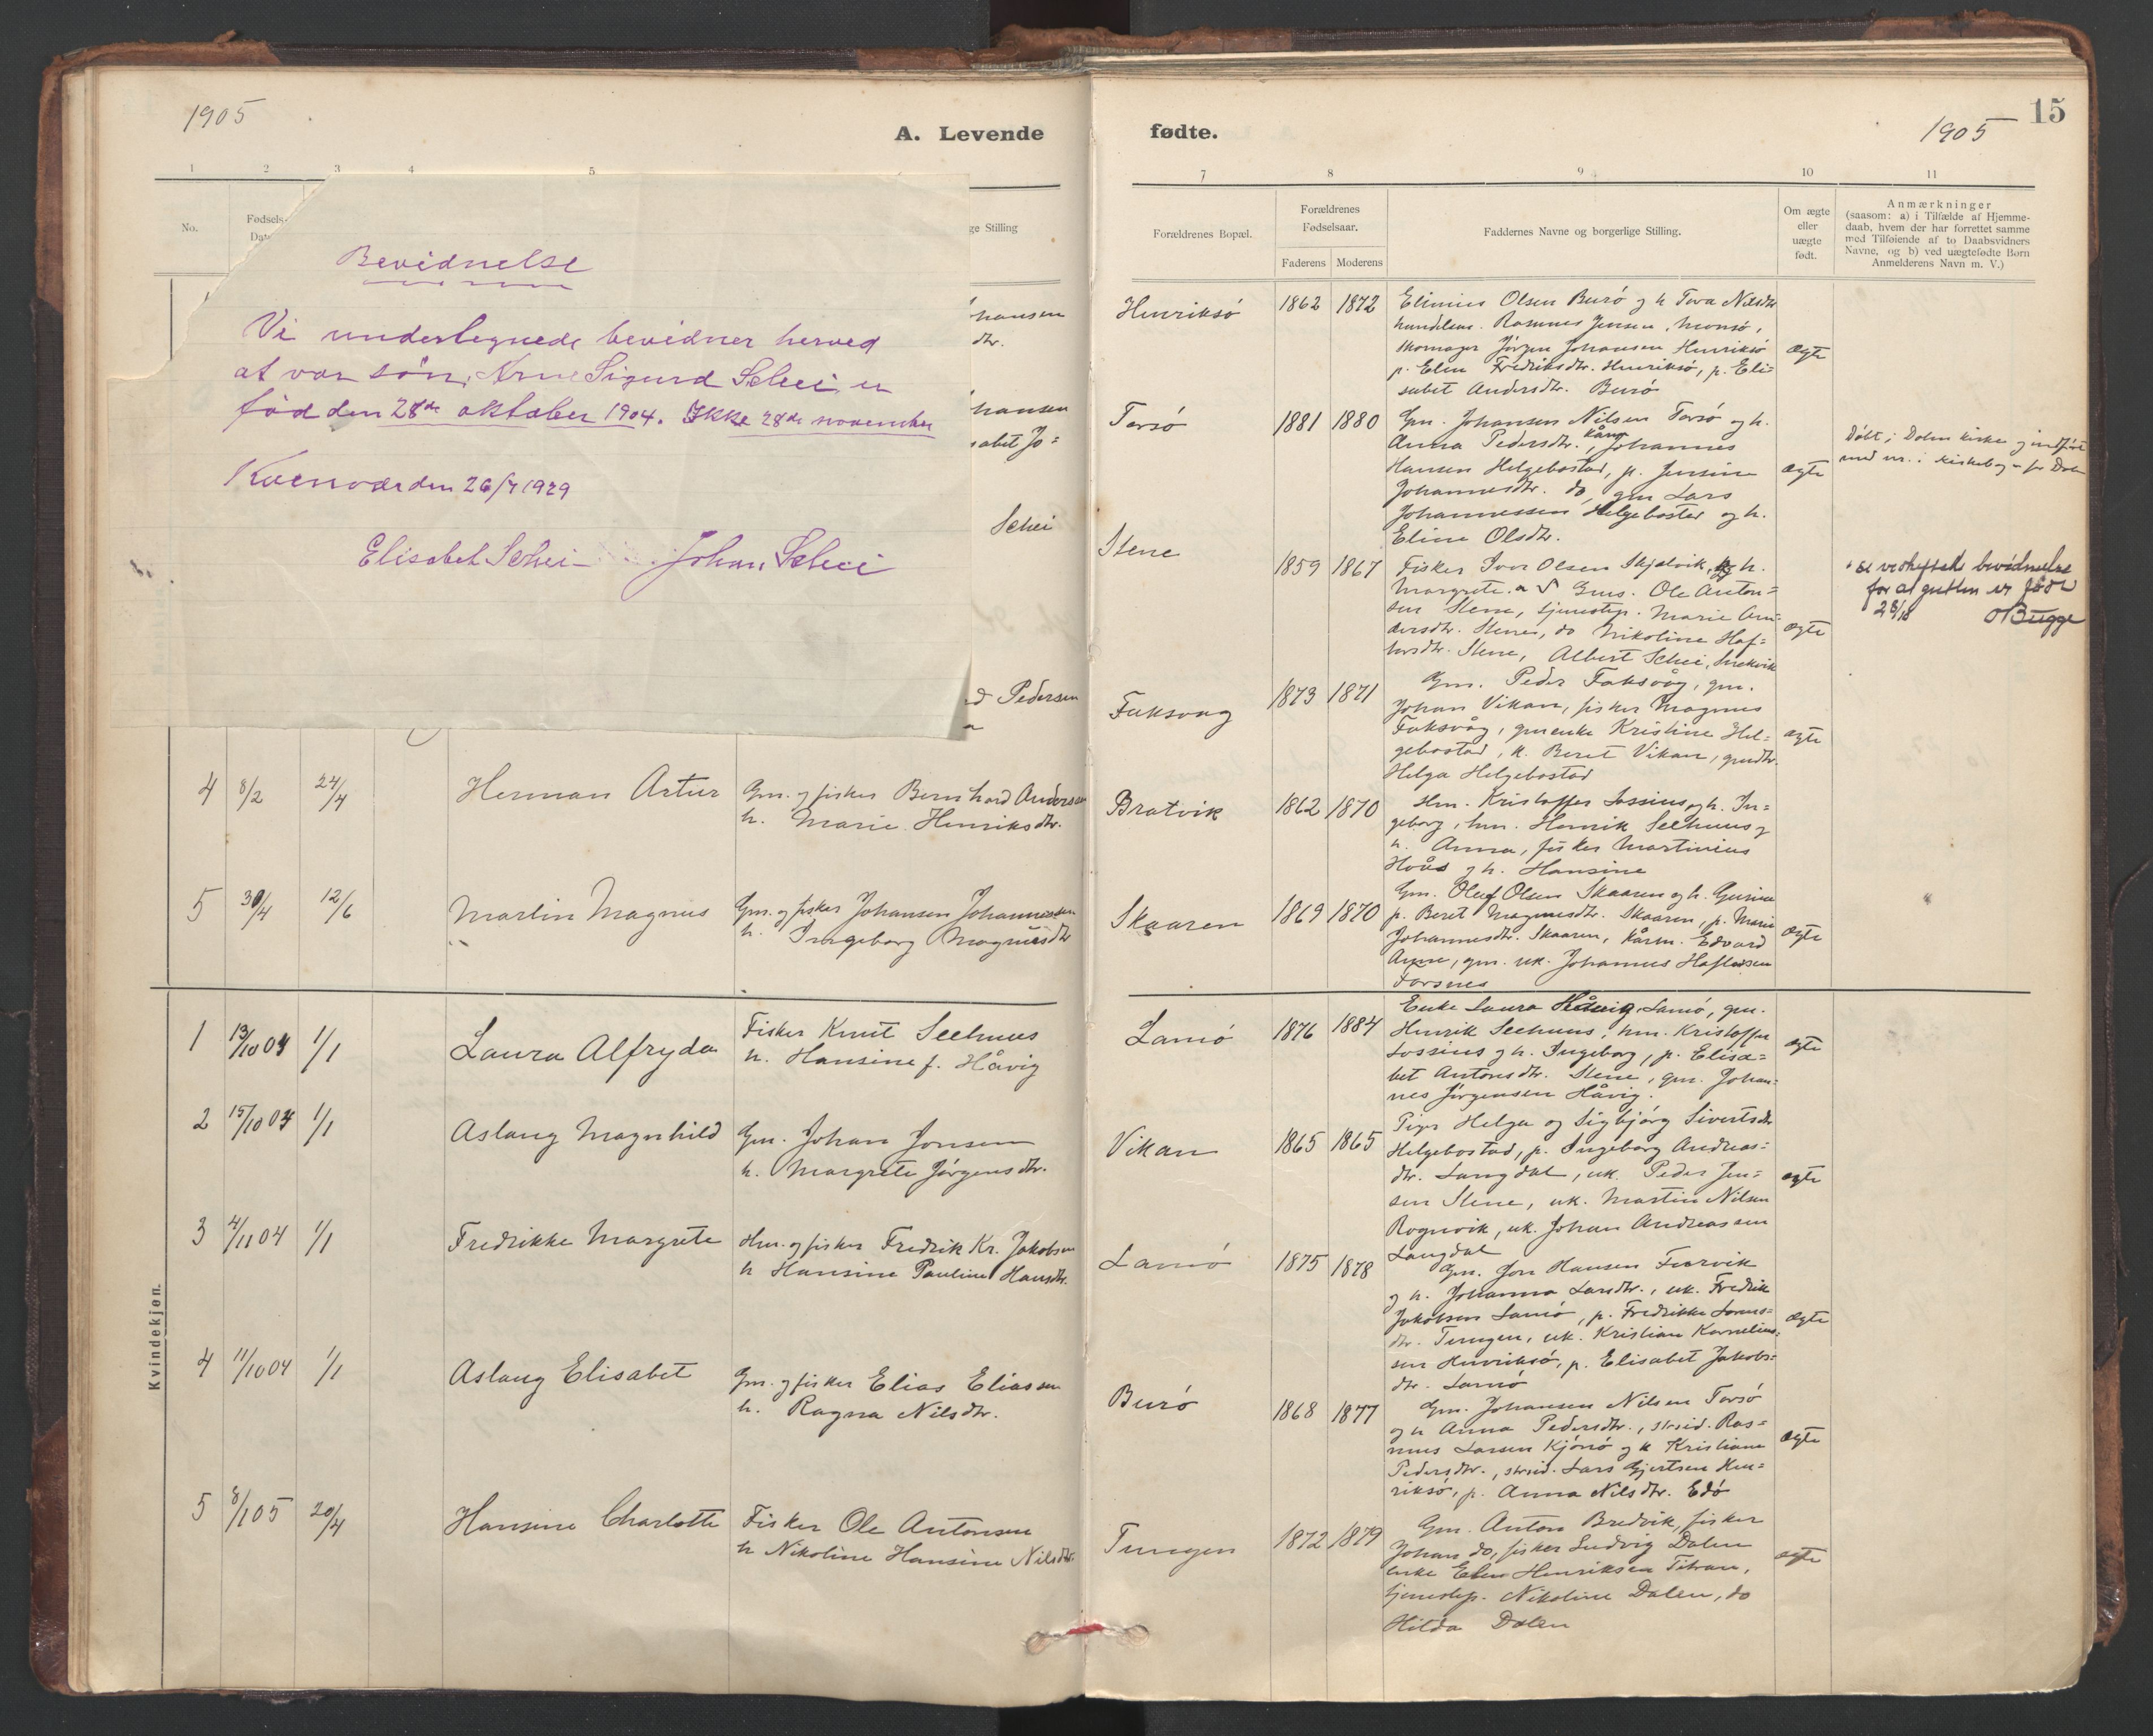 1905
A. Levende
1 2 3 4 5
No.
Fødsels-
Dat
ge Stilling
Bevidnelse
Vi undertegnede bevidner herved
at vor søn, Arne Sigurd Schei er
fød den 28de oktober 1904. Ikke 28de november
Kvenvær den 26/7 1929
Elisabet Schei Johan Schei
hansen
dtr.
hansen
abet Jo=
Schei
d Pedersen
4 8/2 24/4 Herman Artur Gm. og fisker Bernhard Andersen
h. Marie Henriksdtr.
5 30/4 12/6 Martin Magnus Gm. og fisker Johansen Johannessen
h. Ingeborg Magnusdtr
Kvindekjøn.
1 13/10 04 1/1 Laura Alfryda Fisker Knut Seehuus
h. Hansine f. Håvig
2 15/10 04 1/1 Aslaug Magnhild Gm. Johan Jonsen
h. Margrete Jørgensdtr.
3 4/11 04 1/1 Fredrikke Margrete Hm. og fisker Fredrik Kr. Jakobsen
h Hansine Pauline Hansdtr.
4 11/10 04 1/1 Aslaug Elisabet Gm. og fisker Elias Eliassen
h. Ragna Nilsdtr.
5 8/1 05 20/4 Hansine Charlotte Fisker Ole Antonsen
h Nikoline Hansine Nilsdtr.
fødte.
1905
15
7 8 9 10 11
Forældrenes Bopæl.
Forældrenes
Fødselsaar.
Faderens Moderens
Faddernes Navne og borgerlige Stilling.
Om ægte
eller
uægte
født.
Anmærkninger
(saasom: a) i Tilfælde af Hjemme-
daab, hvem der har forrettet samme
med Tilføiende af to Daabsvidners
Navne, og b) ved uægtefødte Børn
Anmelderens Navn m. V.)
Henriksø 1862 1872 Elimius Olsen Burø og h Tora Nilsdtr
handelsm. Rasmus Jensen, Monsø,
skomager Jørgen Johansen Henriksø
p. Elen Fredriksdtr. Henriksø, p. Eli=
sabet Andersdtr. Burø
ægte
Torsø 1881 1880 Gm. Johansen Nilsen Torsø og h.
Anna Pedersdtr. kårm. Johannes
Hansen Helgebostad, p. Jensine
Johannesdtr. do, gm Lars
Johannessen Helgebostad og h.
Eline Olsdtr.
ægte
Døbt i Dolm kirke og indført
med nr. i kirkebogen for Dolm
Stene 1859 1867 Fisker Ivar Olsen Skjælvik, og h.
Margrete. Gms. Ole Anton=
sen Stene, tjenestep. Marie An=
dersdtr. Stene, do Nikoline Haf=
torsdtr. Stene, Albert Schei, Snekvik
ægte
se vedheftede bevidnelse
for at gutten er født
28/10 OBugge
Faksvag 1873 1871 Gm. Peder Faksvåg, gm.
Johan Vikan, fisker Magnus
Faksvåg, gmenke Kristine Hel=
gebostad, k. Beret Vikan, gmdtr.
Helga Helgebostad
ægte
Bratvik 1862 1870 Hm. Kristoffer Lossius og h. In=
geborg, hm. Henrik Seehuus og
h. Anna, fisker Martinius
Hoås og h. Hansine
Skaaren 1869 1870 Gm. Oluf Olsen Skaaren og h. Gusine
p. Beret Magnusdtr. Skaaren, p. Marie
Johannesdtr. Skaaren, kårm. Edvard
Aune, gm. uk. Johannes Haftorsen
Forsnes
ægte
Lamø 1876 1884 Enke Laura Håvig, Lamø, gm.
Henrik Seehuus, hm. Kristoffer
Lossius og h. Ingeborg, p. Elisa=
bet Antonsdtr. Stene, gm. Johan=
nes Jørgensen Håvig.
ægte
Vikan 1865 1865 Piger Helga og Sigbjørg Sivertsdtr
Helgebostad, p. Ingeborg Andreas=
dtr. Langdal, uk. Peder Jen=
sen Stene, uk. Martin Nilsen
Rognvik, uk. Johan Andreassen
Langdal
ægte
Lamø 1875 1878 Gm. Jon Hansen Fævik
og h. Johanna Larsdtr., uk. Fredrik
Jakobsen Lamø, p. Fredrikke Lorns=
dtr. Tungen, uk. Kristian Kornelius=
sen Henriksø, p. Elisabet Jakobs=
dtr. Lamø
ægte
Burø 1868 1877 Gm. Johansen Nilsen Torsø
og h Anna Pedersdtr., strsid. Ras=
mus Larsen Kjønnø og h Kristiane
Pedersdtr., strsid. Lars Gjertsen Hen=
riksø, p. Anna Nilsdtr. Edø
ægte
Tungen 1872 1879 Gm. Anton Bredvik, fisker
Johan do, fisker Ludvig Dalen
enke Elen Henriksen Titran,
tjenestep. Nikoline Dalen, do
Hilda Dalen
ægte